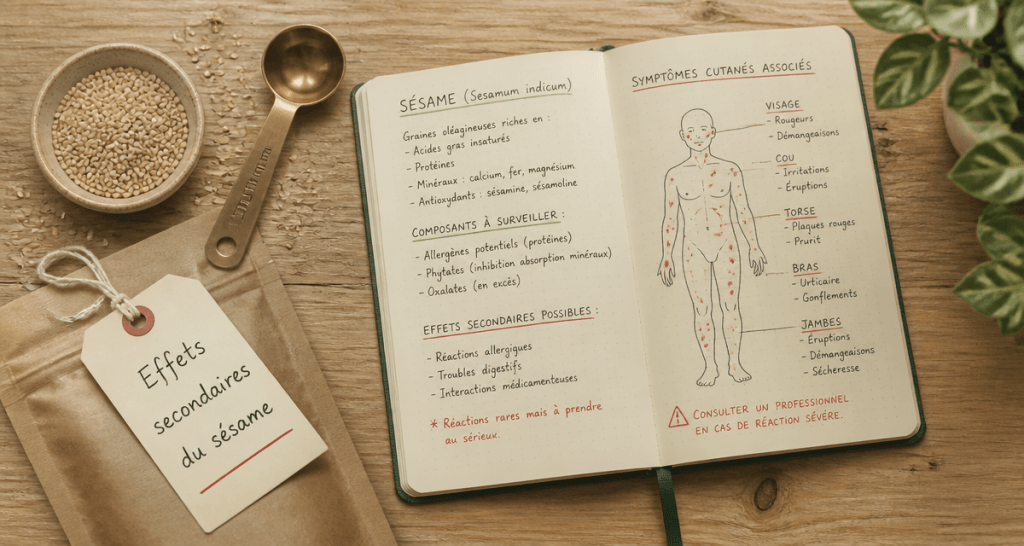 Effets
secondaires
du sésame
SÉSAME (Sesamum indicum)
Graines oléagineuses riches en :
- Acides gras insaturés
- Protéines
- Minéraux : calcium, fer, magnésium
- Antioxydants : sésamine, sésamoline
COMPOSANTS À SURVEILLER :
- Allergènes potentiels (protéines)
- Phytates (inhibition absorption minéraux)
- Oxalates (en excès)
EFFETS SECONDAIRES POSSIBLES :
- Réactions allergiques
- Troubles digestifs
- Interactions médicamenteuses
* Réactions rares mais à prendre
au sérieux.
SYMPTÔMES CUTANÉS ASSOCIÉS
VISAGE
- Rougeurs
- Démangeaisons
COU
- Irritations
- Éruptions
TORSE
- Plaques rouges
- Prurit
BRAS
- Urticaire
- Gonflements
JAMBES
- Éruptions
- Démangeaisons
- Sécheresse
CONSULTER UN PROFESSIONNEL
EN CAS DE RÉACTION SÉVÈRE.